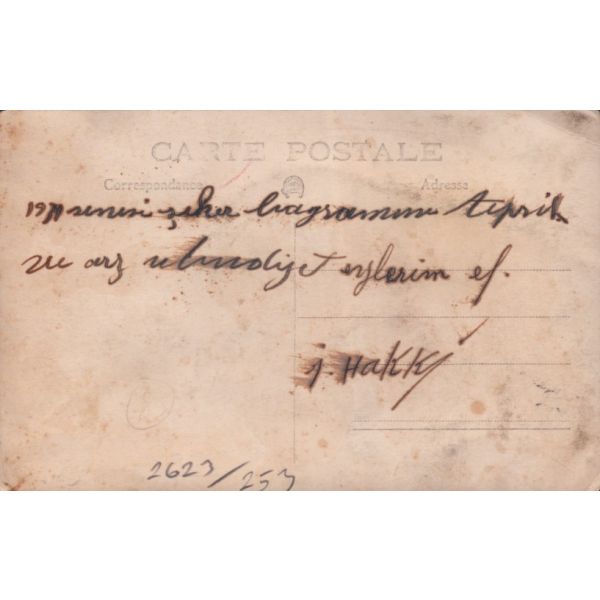 CARTE POSTALE
Correspondance Adresse
senesi şeker bayramını teprik
ve arz ubudiyet eylerim ef.
i. HaKKi
2623/253